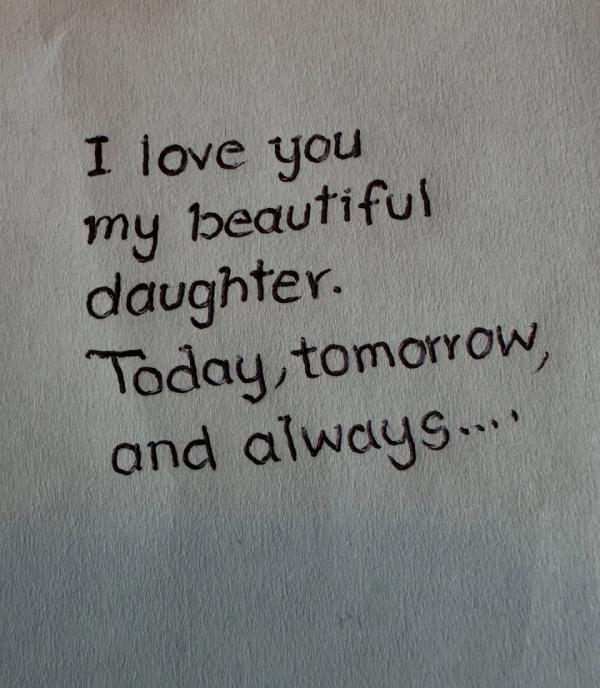 I love you
my beautiful
daughter.
Today, tomorrow,
and always....